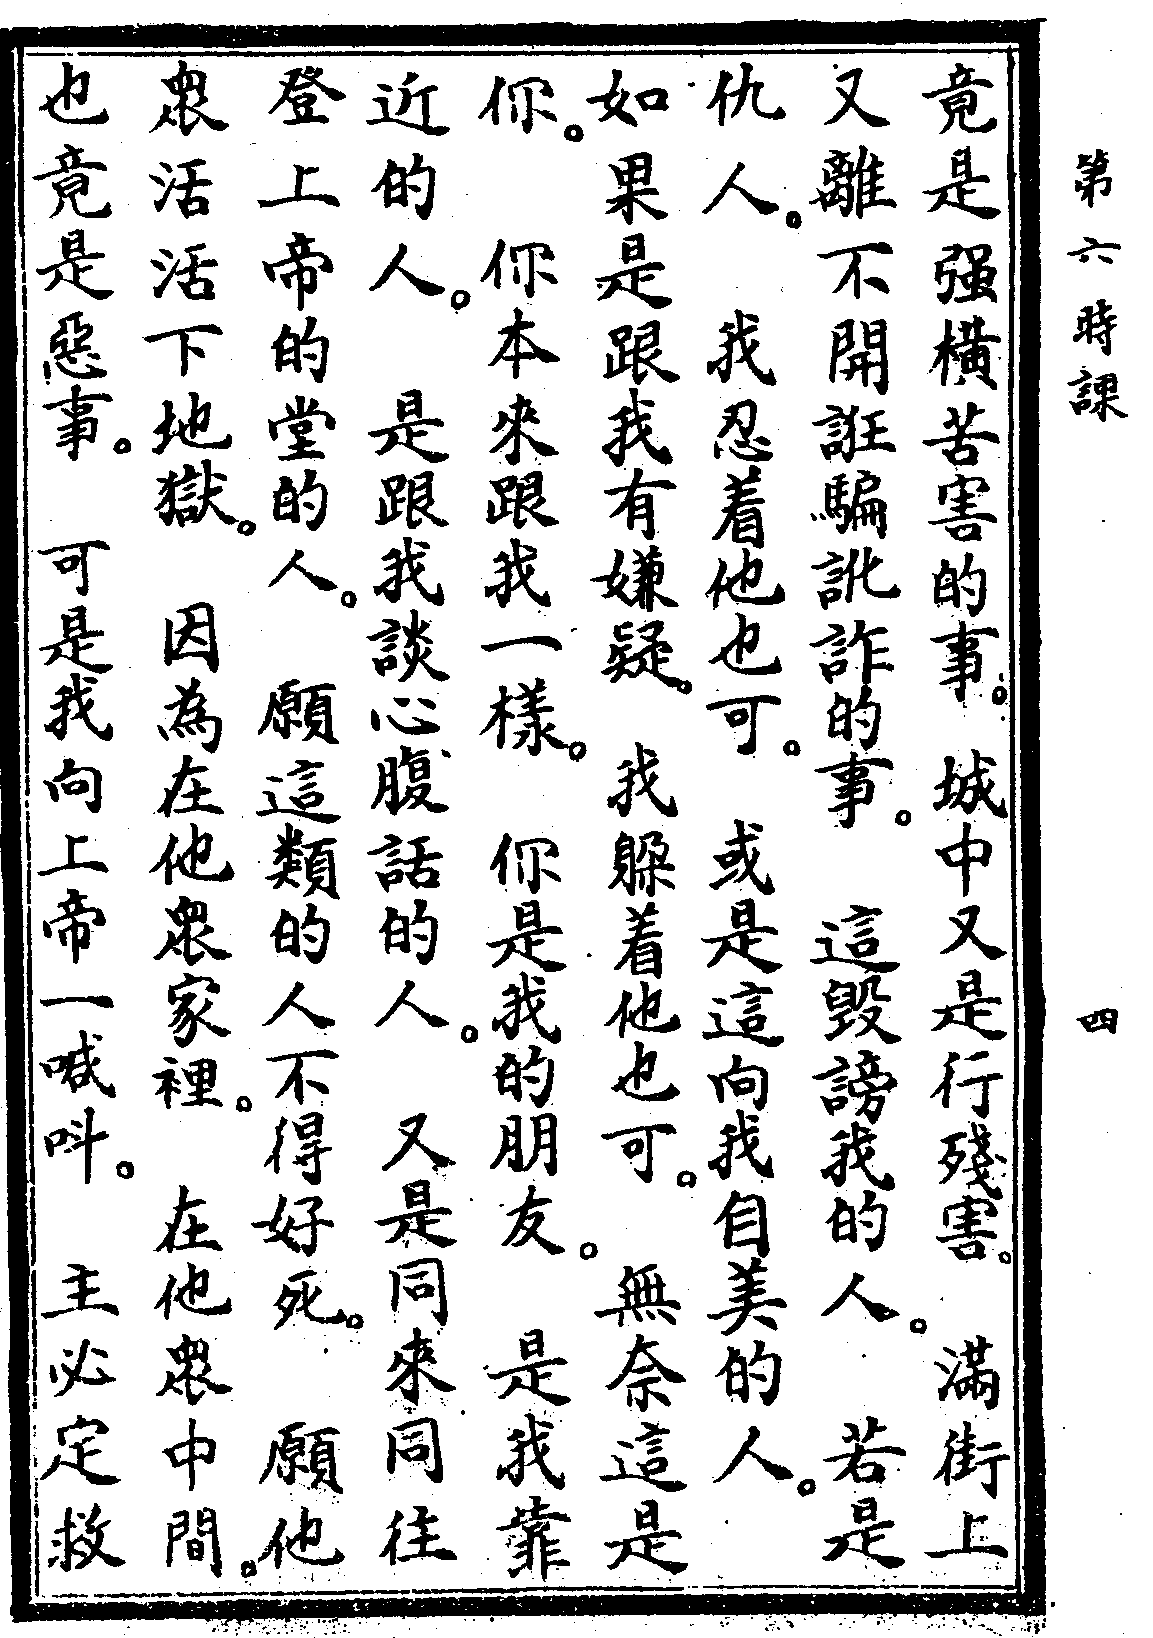 第六時課 四
竟是强橫苦害的事。城中又是行殘害。滿街上
又離不開誑騙訛詐的事。這毀謗我的人。若是
仇人。我忍着他也可。或是這向我自美的人。
如果是跟我有嫌疑。我躲着他也可。無奈這是
你。你本來跟我一樣。你是我的朋友。是我靠
近的人。是跟我談心腹話的人。又是同來同往
登上帝的堂的人。願這類的人不得好死。願他
衆活活下地獄。因為在他衆家裡。在他衆中間。
也竟是惡事。可是我向上帝一喊呌。主必定救